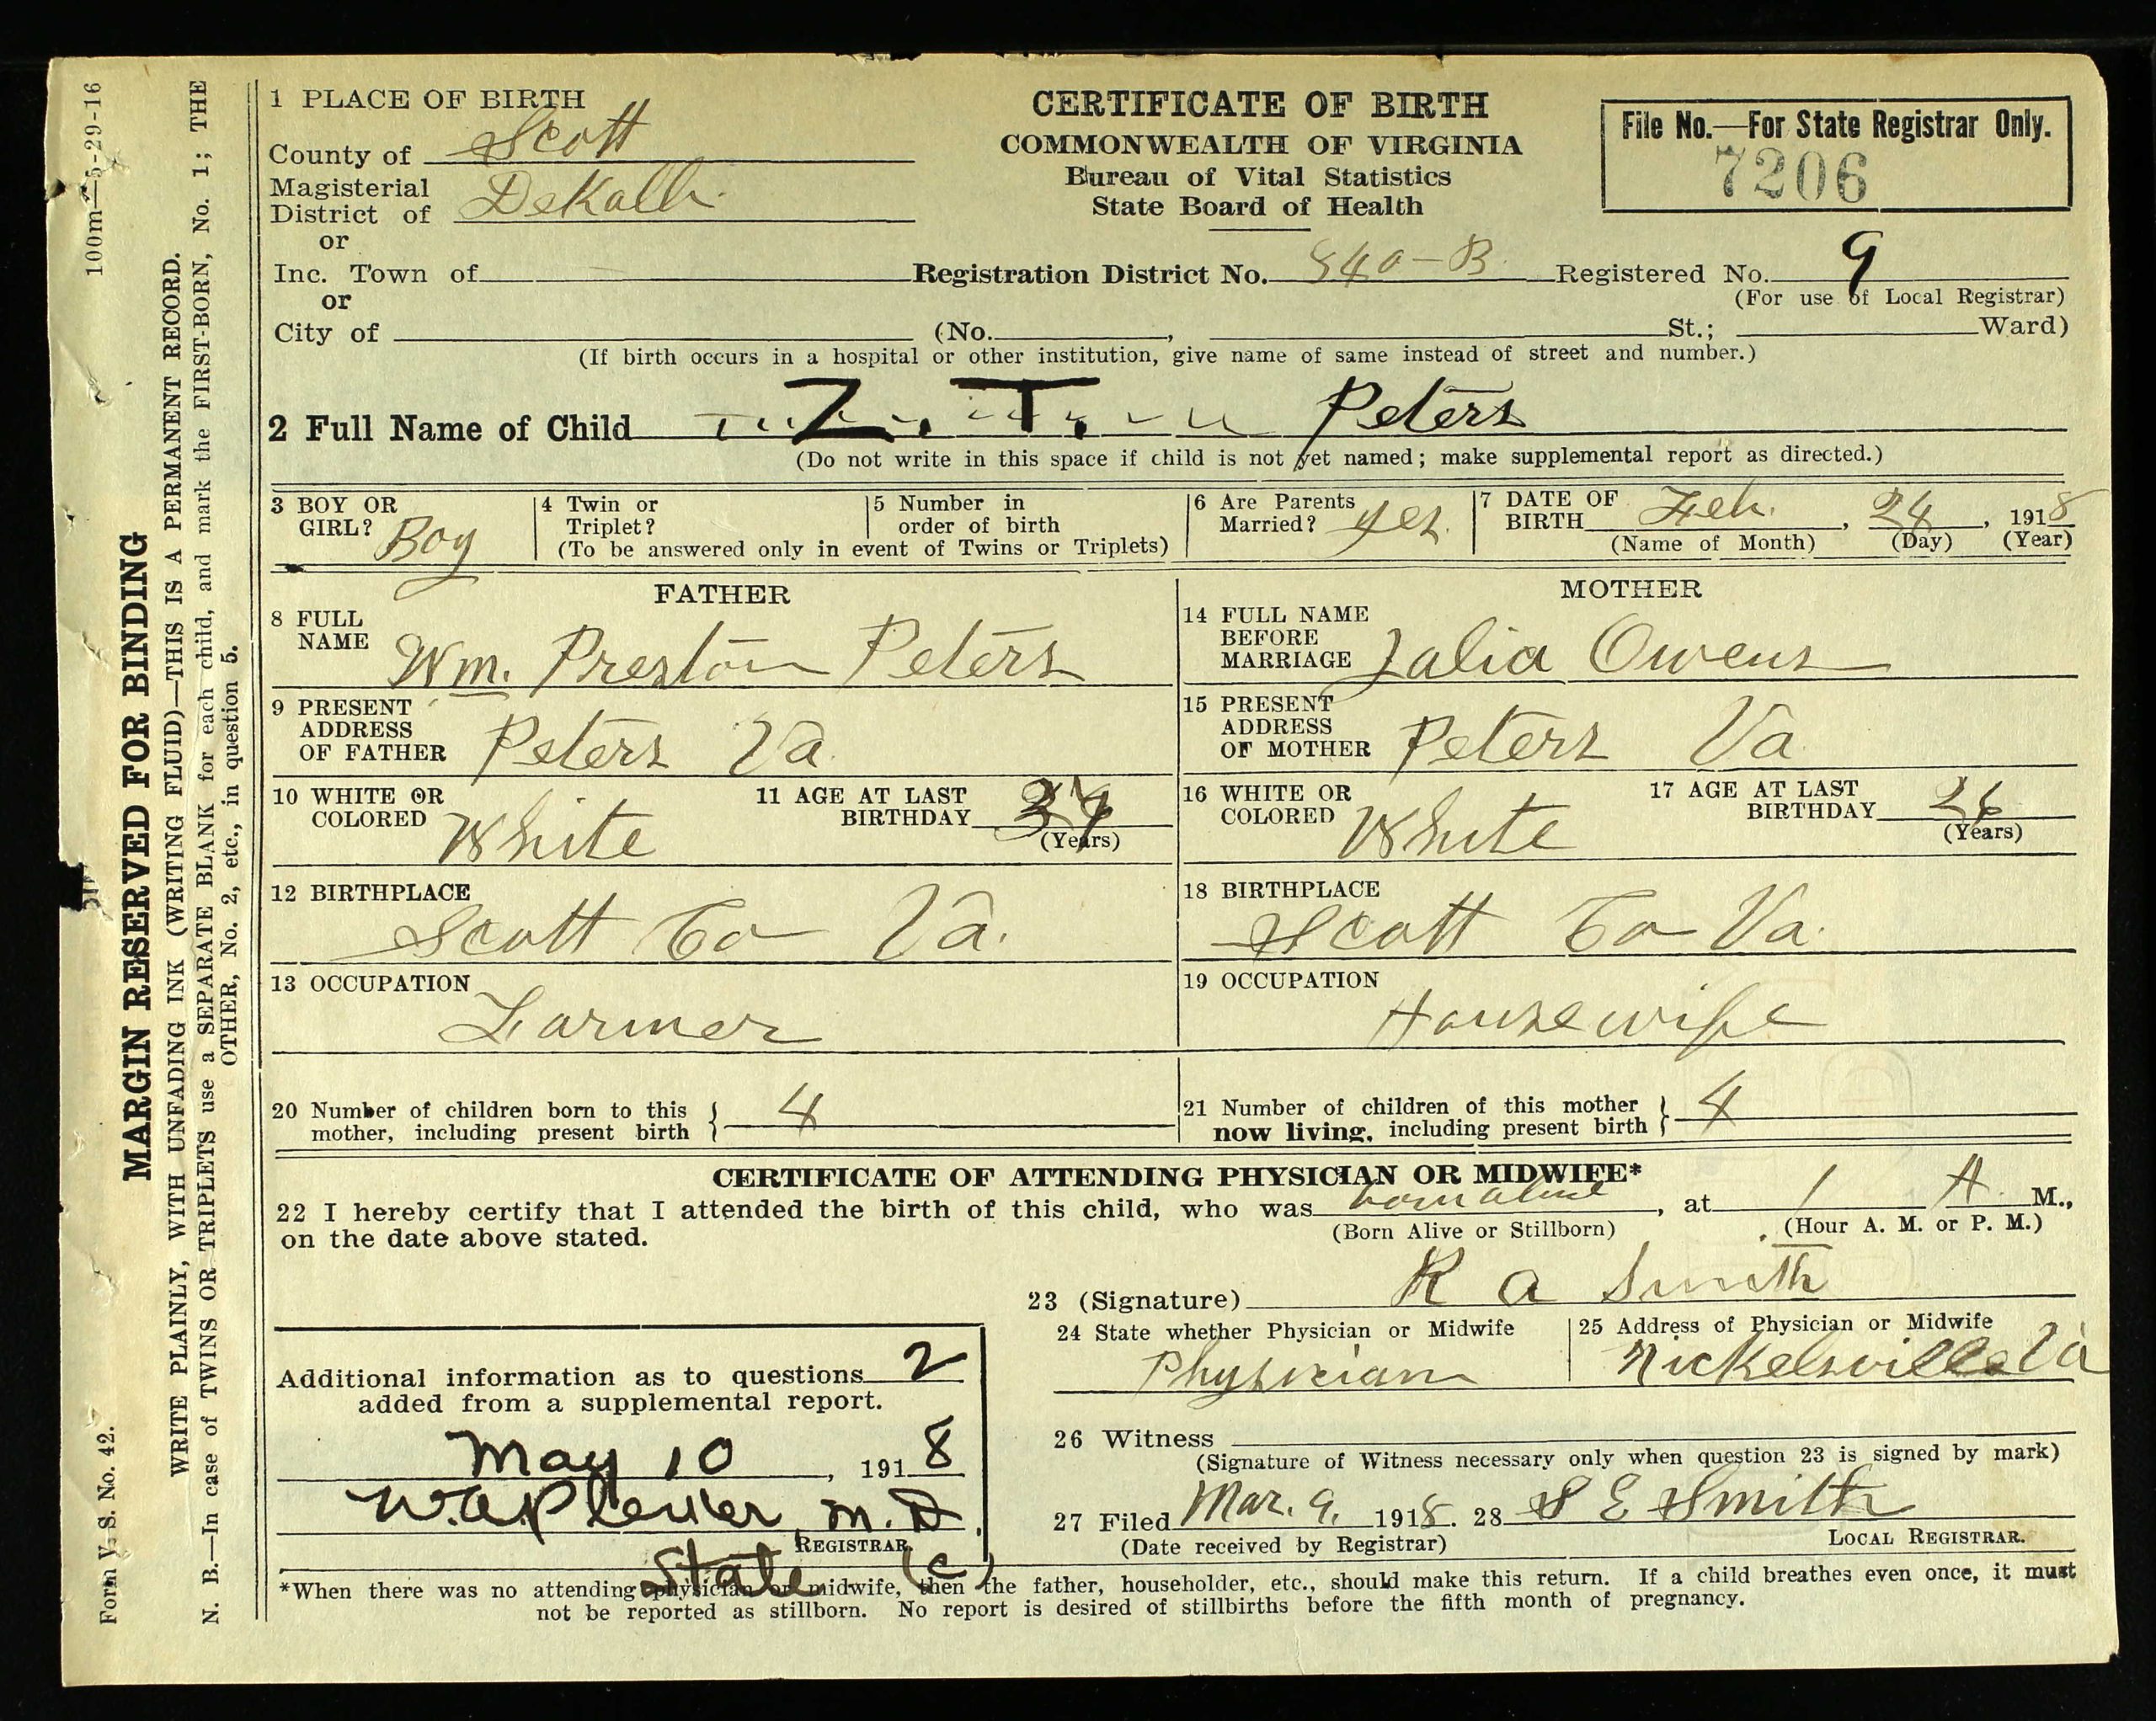 100m—5-29-16
MARGIN RESERVED FOR BINDING
WRITE PLAINLY, WITH UNFADING INK (WRITING FLUID)—THIS IS A PERMANENT RECORD.
N. B.—In case of TWINS OR TRIPLETS use a SEPARATE BLANK for each child, and mark the FIRST-BORN, No. 1; THE
OTHER, No. 2, etc., in question 5.
Form V. S. No. 42.
1 PLACE OF BIRTH
County of Scott
Magisterial
District of DeKalb.
or
Inc. Town of
or
City of (No. , St.; Ward)
CERTIFICATE OF BIRTH
COMMONWEALTH OF VIRGINIA
Bureau of Vital Statistics
State Board of Health
File No.—For State Registrar Only.
7206
Registration District No. 840-B Registered No. 9
(For use of Local Registrar)
(If birth occurs in a hospital or other institution, give name of same instead of street and number.)
2 Full Name of Child Z. T. Peters
(Do not write in this space if child is not yet named; make supplemental report as directed.)
3 BOY OR
GIRL? Boy
4 Twin or
Triplet?
5 Number in
order of birth
(To be answered only in event of Twins or Triplets)
6 Are Parents
Married? yes.
7 DATE OF
BIRTH Feb. , 24 , 1918
(Name of Month) (Day) (Year)
FATHER
8 FULL
NAME Wm. Preston Peters
9 PRESENT
ADDRESS
OF FATHER Peters Va.
10 WHITE OR
COLORED White
11 AGE AT LAST
BIRTHDAY
(Years)
12 BIRTHPLACE
Scott Co Va.
13 OCCUPATION
Farmer
MOTHER
14 FULL NAME
BEFORE
MARRIAGE Lalia Owens
15 PRESENT
ADDRESS
OF MOTHER Peters Va
16 WHITE OR
COLORED White
17 AGE AT LAST
BIRTHDAY 26
(Years)
18 BIRTHPLACE
Scott Co Va.
19 OCCUPATION
Housewife
20 Number of children born to this
mother, including present birth } 4
21 Number of children of this mother
now living, including present birth } 4
CERTIFICATE OF ATTENDING PHYSICIAN OR MIDWIFE*
22 I hereby certify that I attended the birth of this child, who was born alive , at 1 A. M.,
on the date above stated. (Born Alive or Stillborn) (Hour A. M. or P. M.)
23 (Signature) R A Smith
24 State whether Physician or Midwife
Physician
25 Address of Physician or Midwife
Nickelsville Va
Additional information as to questions 2
added from a supplemental report.
May 10 , 1918
M.D.
REGISTRAR.
State (c)
26 Witness
(Signature of Witness necessary only when question 23 is signed by mark)
27 Filed Mar. 9, 1918. 28 S E Smith
(Date received by Registrar) LOCAL REGISTRAR.
*When there was no attending physician or midwife, then the father, householder, etc., should make this return. If a child breathes even once, it must
not be reported as stillborn. No report is desired of stillbirths before the fifth month of pregnancy.